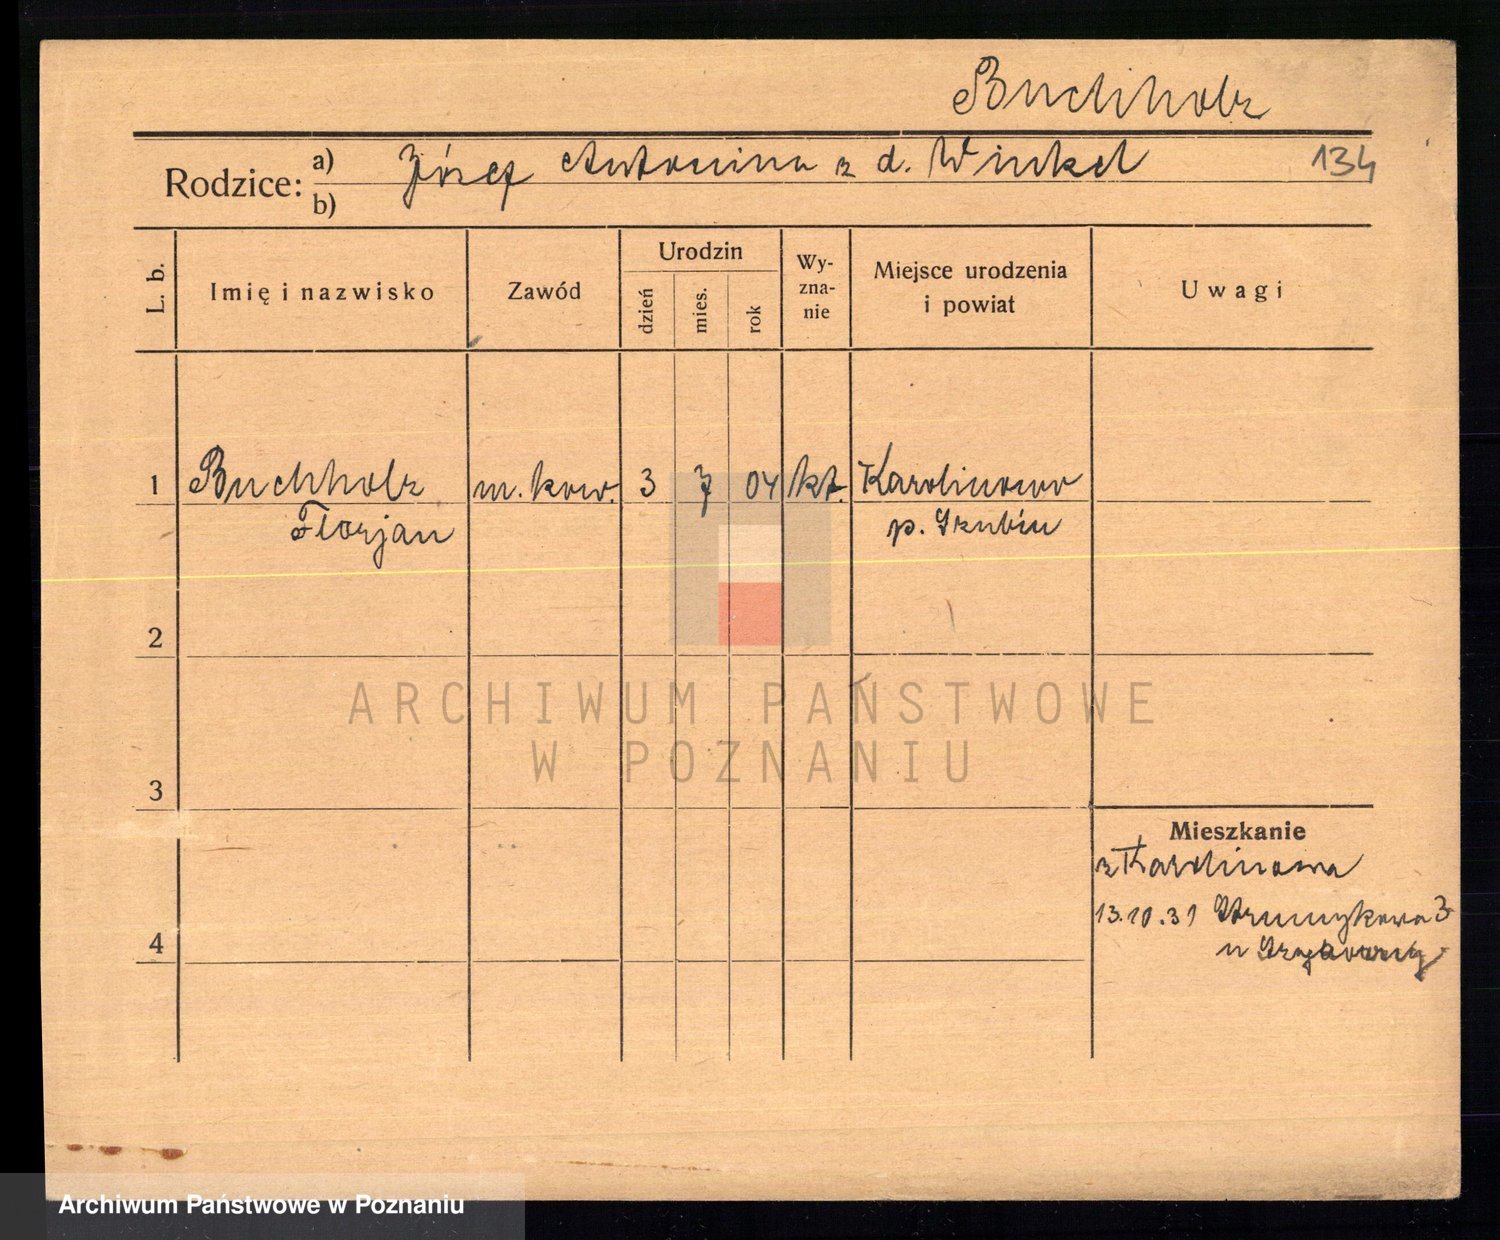 Buchholz
Rodzice: a) Józef Antonina z d. Winkel 134
b)
L. b. Imię i nazwisko Zawód Urodzin dzień mies. rok Wyznanie Miejsce urodzenia i powiat Uwagi
1 Buchholz m. kow. 3 7 04 kt. Karolinowo
Florjan p. Szubin
2
ARCHIWUM PAŃSTWOWE
W POZNANIU
3
Mieszkanie
z Karolinowa
13.10.31 3
4 u
Archiwum Państwowe w Poznaniu